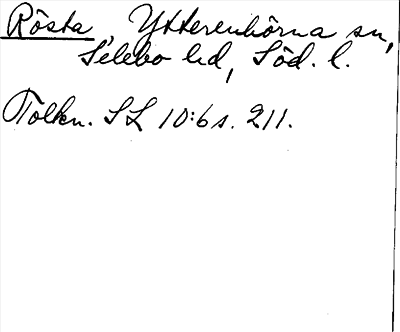 Rösta, Ytterenhörna sn,
Selebo hd, Söd. l.
Tolkn. SL 10:6 s. 211.